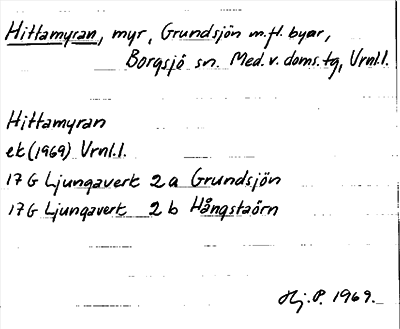 Hittamyran, myr, Grundsjön m.fl. byar,
Borgsjö sn. Med. v. doms. tg, Vrnl.l.
Hittamyran
ek (1969) Vrnl.l.
17 G Ljungaverk 2 a Grundsjön
17 G Ljungaverk 2 b Hångstaörn
Hj. P. 1969.